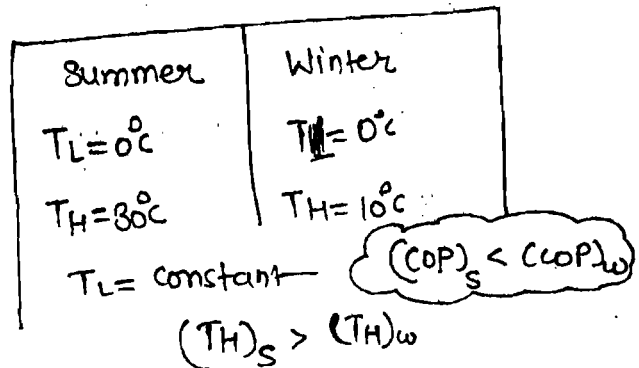 Summer Winter
TL=0°C T=0°C
TH=30°C TH=10°C
TL= constant (COP)s < (COP)w
(TH)s > (TH)w